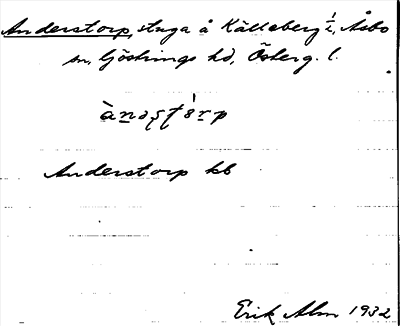 Anderstorp, stuga å Källeberg 1/2, Åsbo
sn, Göstrings hd, Österg. l.
Anderstorp kb
Erik Alm 1932